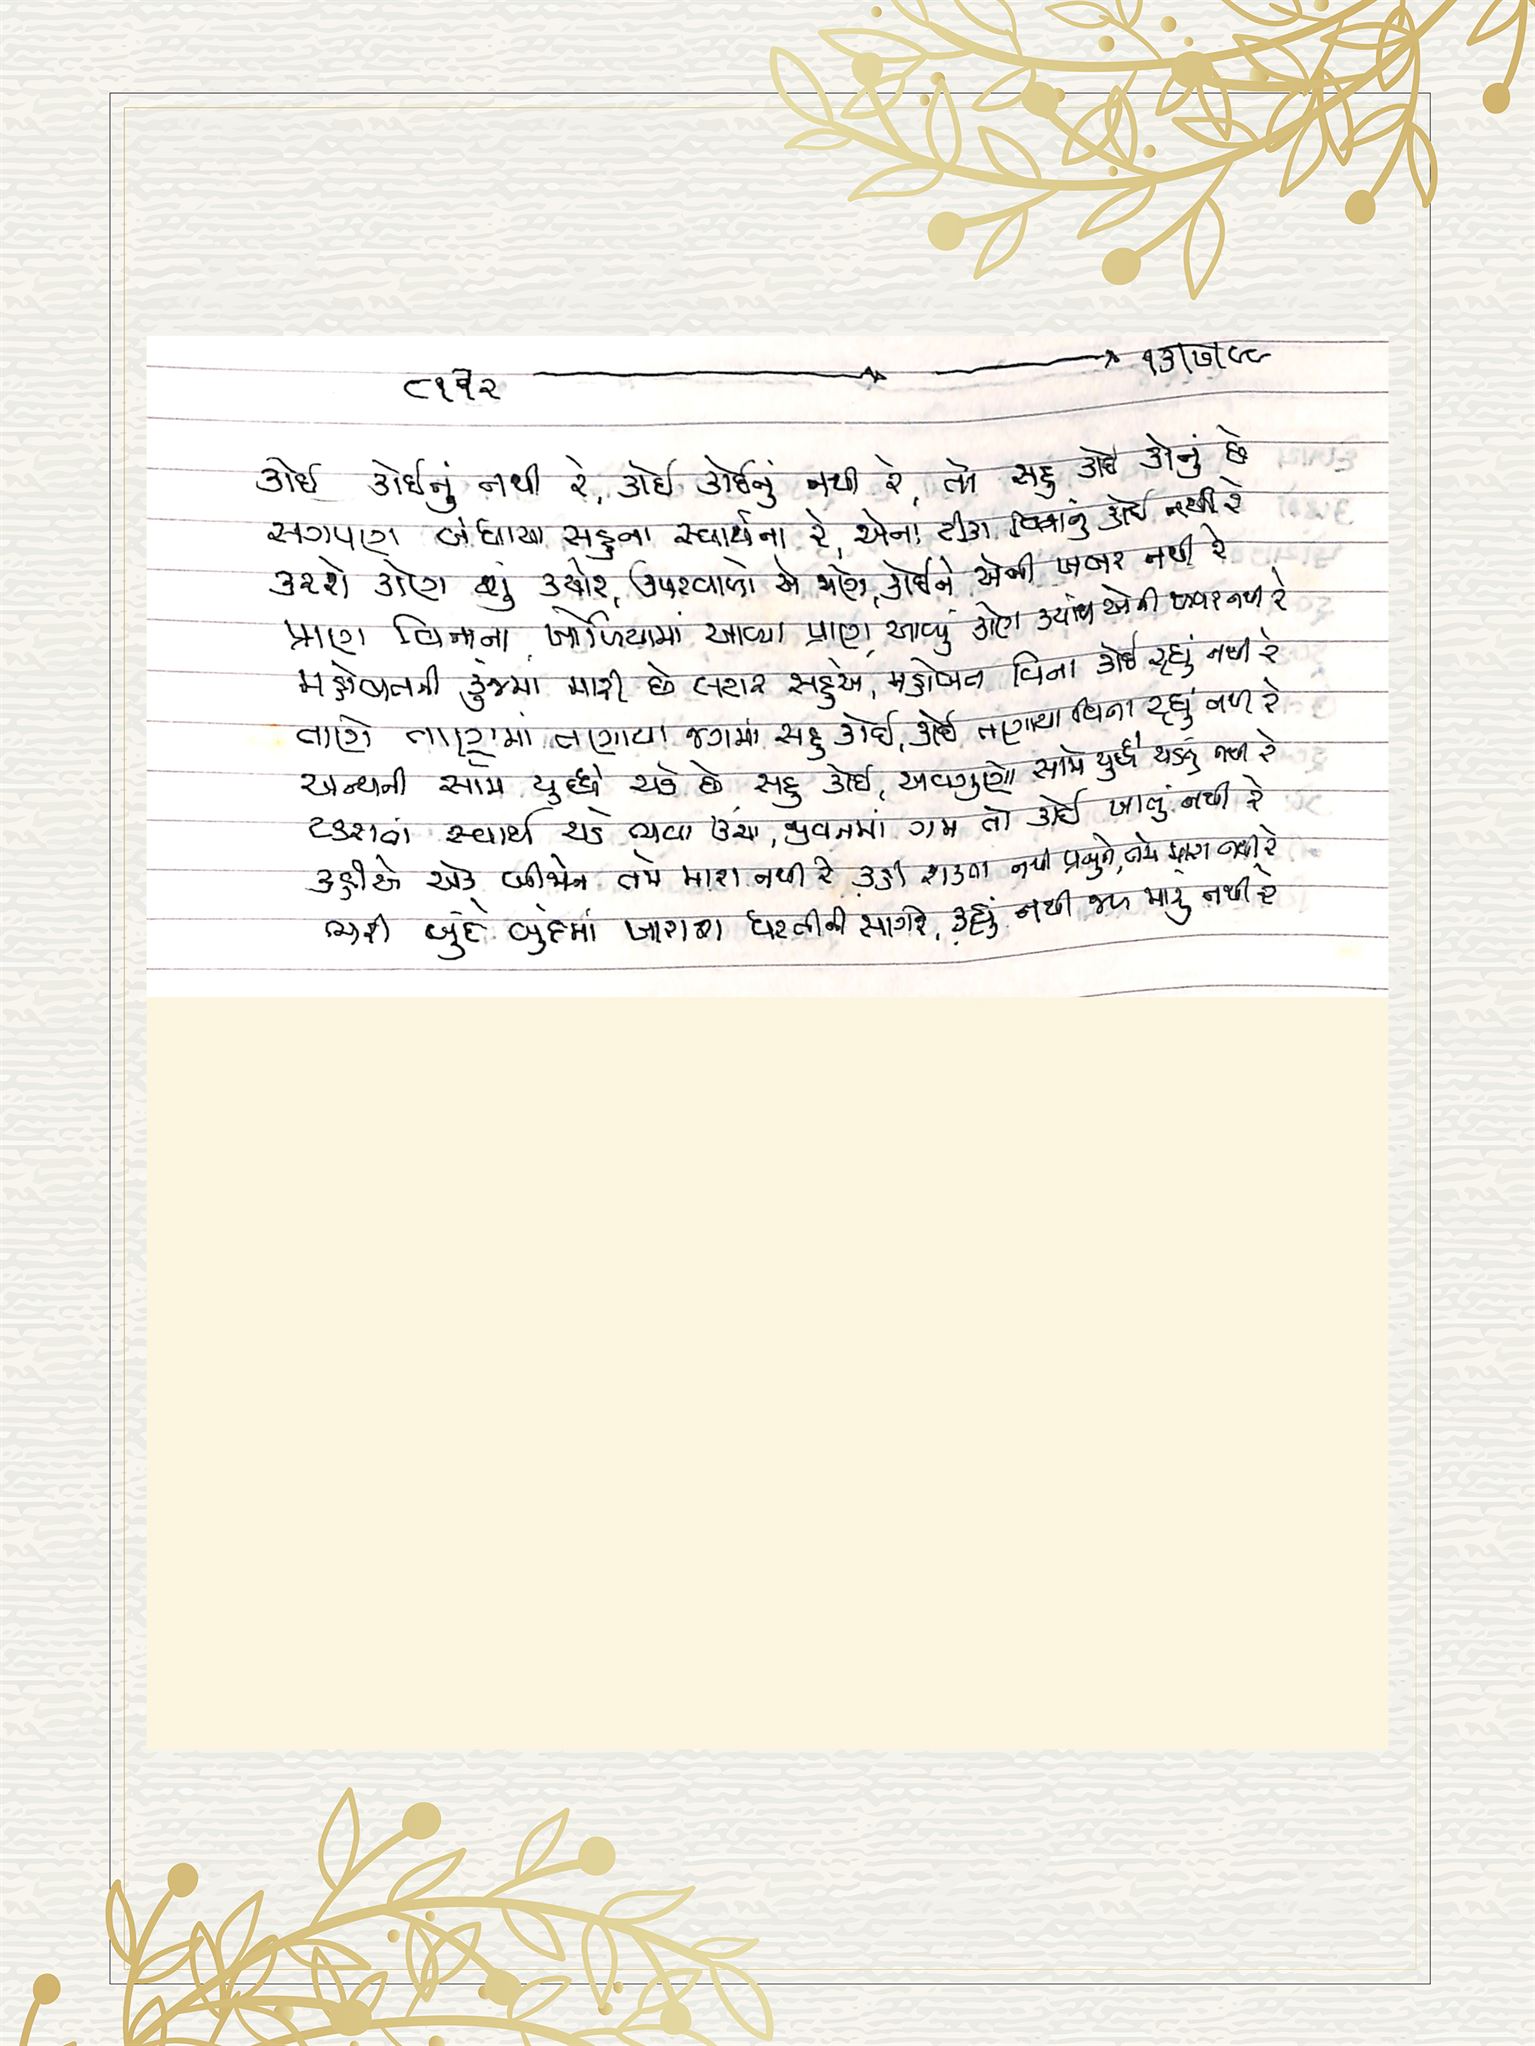 ૮૧૧૨ ૧૩/૭/૯૯
કોઈ કોઈનું નથી રે, કોઈ કોઈનું નથી રે, તો સહુ કોઈ કોનું છે
સગપણ બંધાયા સહુના સ્વાર્થના રે, એના ટીકા વિનાનું કોઈ નથી રે
કરશે કોણ શું ક્યારે, ઉપરવાળો એ જાણે, કોઈને એની ખબર નથી રે
પ્રાણ વિનાના ખોળિયામાં આવ્યા પ્રાણ, આવ્યું કોણ ક્યાંથી એની ખબર નથી રે
મહોબતની કુંજમાં મારી છે લટાર સહુએ, મહોબત વિના કોઈ રહ્યું નથી રે
તાણે તાણમાં તણાયા જગમાં સહુ કોઈ, કોઈ તણાયા વિના રહ્યું નથી રે
અન્યની સામે યુદ્ધે ચડે છે સહુ કોઈ, અવગુણો સામે યુદ્ધે ચડયું નથી રે
ટકરાતાં સ્વાર્થ ચડે ભવા ઉંચા, જીવનમાં ગમ તો કોઈ ખાતું નથી રે
કહીએ એક બીજાને તમે મારા નથી રે કહી શકતા નથી પ્રભુને, તમે મારા નથી રે
ભરી બુંદે બુંદમાં ખારાશ ધરતીની સાગરે, કહ્યું નથી જળ મારું નથી રે